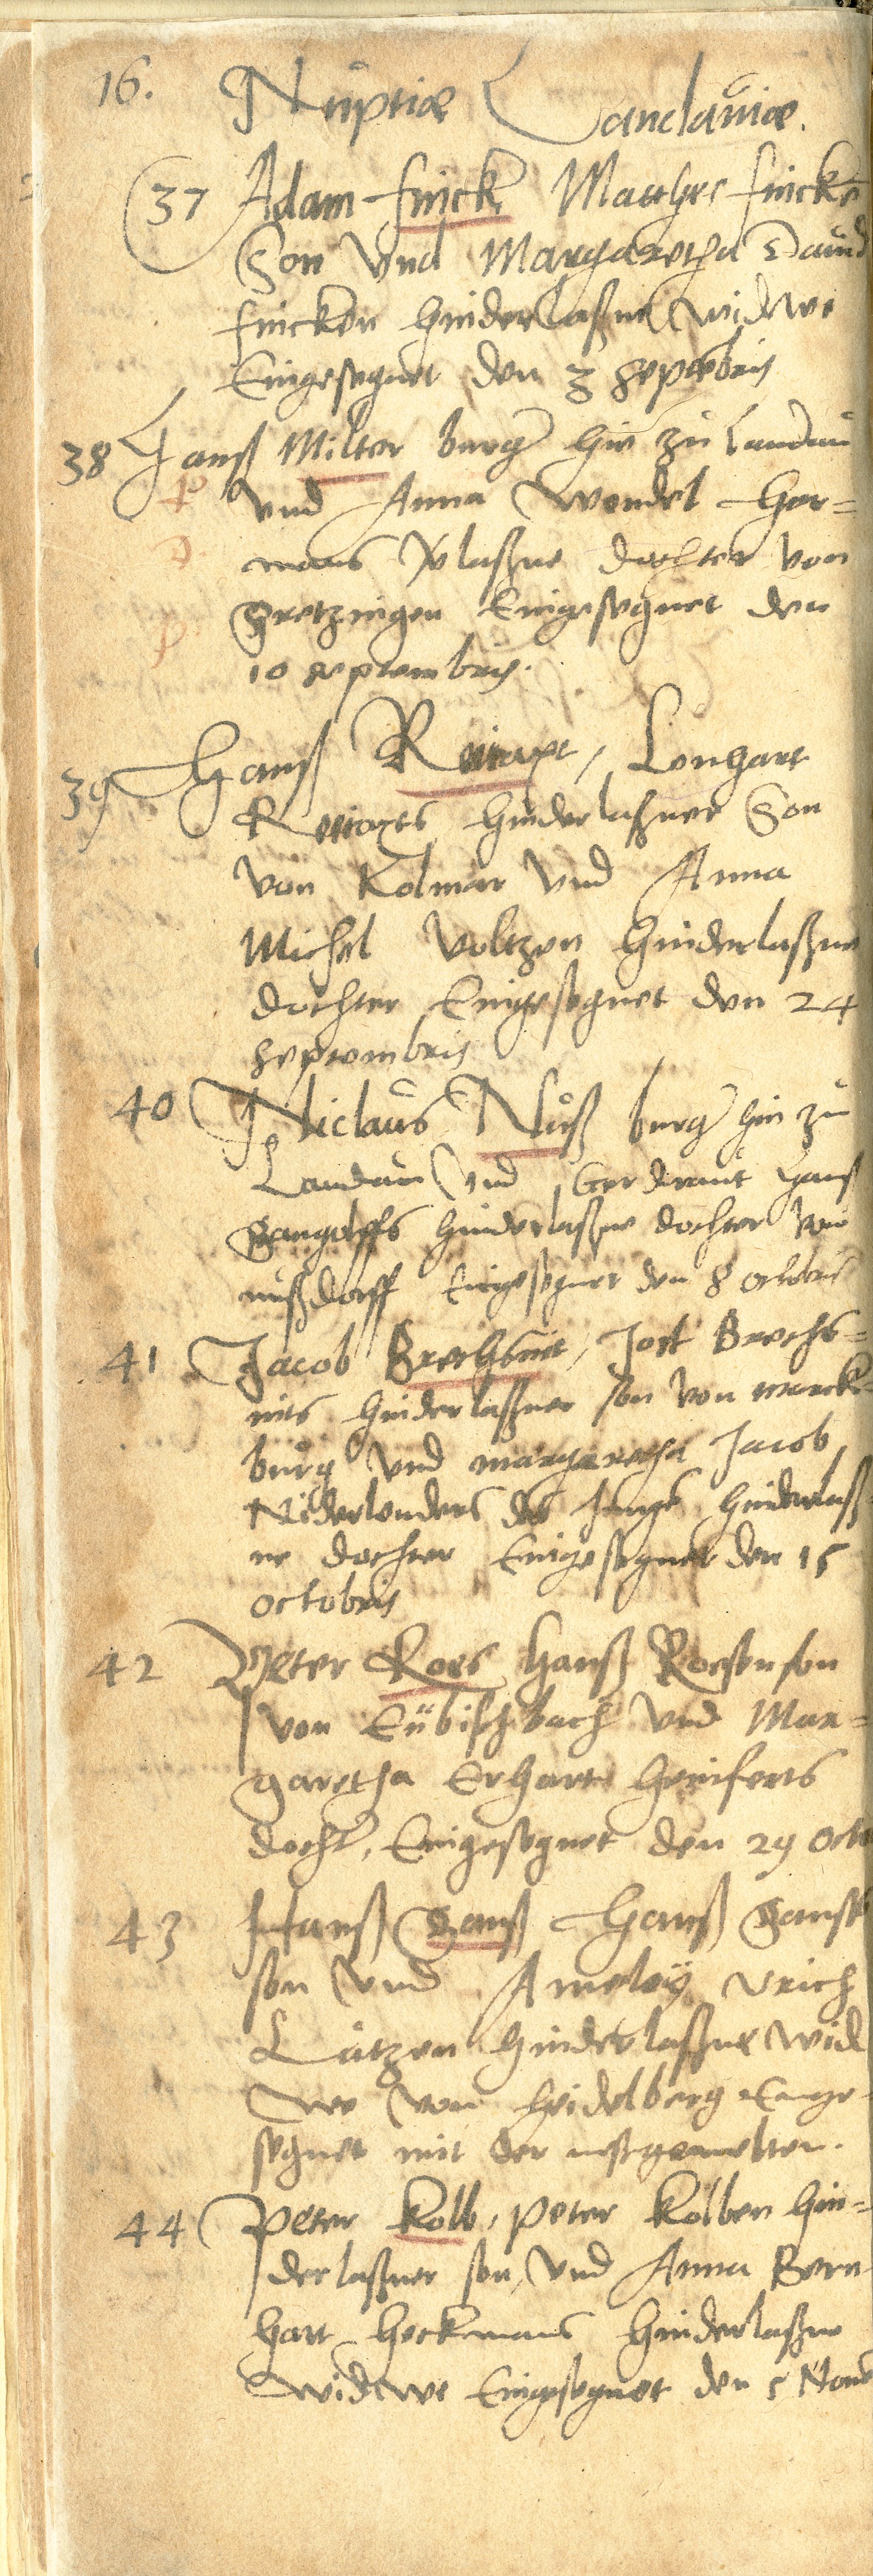 16. Nuptiæ Landauiæ.
37 Adam Finck Matthes Fincke
Son Vnd Margaretha Dauid
Fincken hinderlaßne widwe
Eingesegnet den 3 Septēbris
38 Hanß Milter burger hie zu Landau
vnd Anna Wendel Her=
mans Vlaßne dochter von
Gretzingen Eingesegnet den
10 Septembris.
39 Hanß / Lenhart
hinderlaßner Son
von Kolmar vnd Anna
Michel Voltzen hinderlaßne
dochter Eingesegnet den 24
Septembris
40 Niclaus Nuß burger hie zu
Landau Vnd Gerdraut Hanß
Gangolffs hinderlaßne dochter von
nußdorff Eingesegnet den 8 octobris
41 Jacob Brechsnit, Jost Brechs=
nits hinderlaßner son von
burg vnd margaretha Jacob
Niderlenders des Jungs hinderlaß=
ne dochter Eingesegnet den 15
octobris
42 Peter Roes Hanß Roesen son
von Eübischbach Vnd Mar=
garetha Erhart Heniferts
docht, Eingesegnet den 29 Octo
43 Hanß Ganß Hanß Gansen
son Vnd Ameley Vrich
Lutzen hinderlaßne wid
we von Heidelberg Einge=
segnet mit der nestgemelten.
44 Peter Kolb, Peter Kolben hin=
derlaßner son, Vnd Anna Bern=
hart Heckmans hinderlaßne
widwe Eingesegnet den 5 Noue